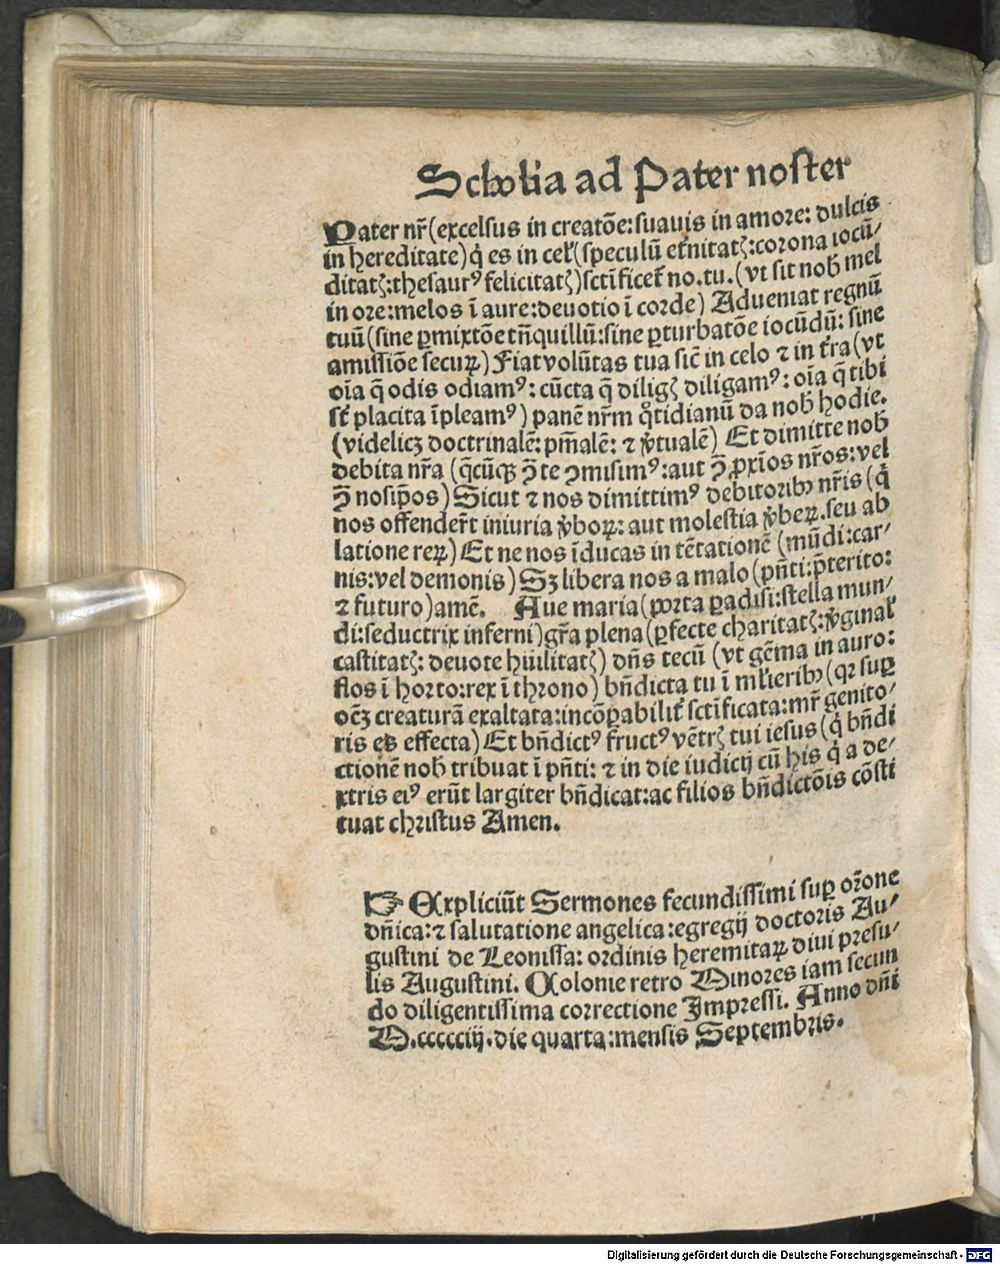 Scholia ad Pater noster
Pater nr̄(excelsus in creatōe:suauis in amore: dulcis
in hereditate)q̇ es in cel᷑(speculū et̄nitatꝭ:corona iocū/
ditatꝭ:thesaurꝰ felicitatꝭ)sctīficet᷑ no.tu.(vt sit nob̄ mel
in ore:melos ī aure:deuotio ī corde) Adueniat regnū
tuū(sine ꝑmixtōe tn̄quillū:sine ꝑturbatōe iocūdū: sine
amissiōe secuꝝ) Fiat volūtas tua sic̄ in celo ⁊ in t̄ra(vt
oīa q̄ odis odiamꝰ: cūcta q̄ diligꝭ diligamꝰ: oīa q̄ tibi
st̄ placita īpleamꝰ) panē nr̄m q̊tidianū da nob̄ hodie.
(videlicꝫ doctrinalē: pm̄alē: ⁊ v̓tualē) Et dimitte nob̄
debita nr̄a (q̄cūqꝫ ꝯ̄ te ꝯmisimꝰ:aut ꝯ̄ ꝓxīos nr̄os:vel
ꝯ̄ nosip̄os) Sicut ⁊ nos dimittimꝰ debitoribꝰ nr̄is (q̇
nos offender̄t iniuria v̓boꝝ: aut molestia v̓beꝝ.seu ab
latione reꝝ) Et ne nos īducas in tētationē (mūdi:car/
nis:vel demonis) Sꝫ libera nos a malo (pn̄ti:p̄terito:
⁊ futuro)amē. Aue maria(porta ꝑadisi:stella mun/
di:seductrix inferni)gr̄a plena(ꝑfecte charitatꝭ:v̓ginal᷑
castitatꝭ: deuote hūilitatꝭ) dn̄s tecū (vt gēma in auro:
flos ī horto:rex ī throno) bn̄dicta tu ī ml̓ieribꝰ (qꝛ suꝑ
oēꝫ creaturā exaltata:incōꝑabilit᷑ sctīficata:mr̄ genito/
ris es effecta) Et bn̄dictꝰ fructꝰ vētrꝭ tui iesus (q̇ bn̄di
ctionē nob̄ tribuat ī pn̄ti: ⁊ in die iudicij cū his q̇ a de/
xtris eiꝰ erūt largiter bn̄dicat:ac filios bn̄dictōis cōsti
tuat christus Amen.
☞ Expliciūt Sermones fecundissimi suꝑ or̄one
dn̄ica:⁊ salutatione angelica:egregij doctoris Au/
gustini de Leonissa: ordinis heremitaꝝ diui presu/
lis Augustini. Colonie retro Minores iam secun
do diligentissima correctione Impressi. Anno dn̄i
M.ccccciij.die quarta:mensis Septembris.
Digitalisierung gefördert durch die Deutsche Forschungsgemeinschaft - DFG